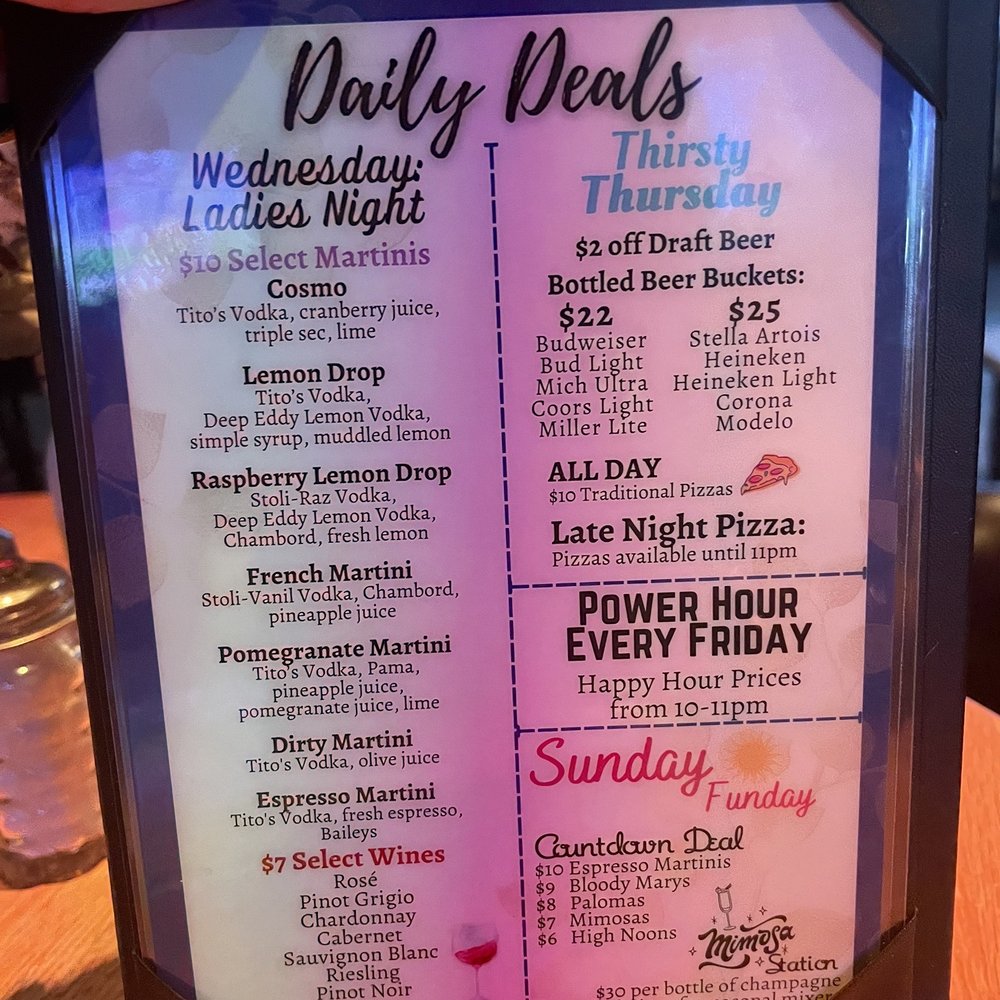 Daily Deals
Wednesday:
Ladies Night
$10 Select Martinis
Cosmo
Tito's Vodka, cranberry juice,
triple sec, lime
Lemon Drop
Tito's Vodka,
Deep Eddy Lemon Vodka,
simple syrup, muddled lemon
Raspberry Lemon Drop
Stoli-Raz Vodka,
Deep Eddy Lemon Vodka,
Chambord, fresh lemon
French Martini
Stoli-Vanil Vodka, Chambord,
pineapple juice
Pomegranate Martini
Tito's Vodka, Pama,
pineapple juice,
pomegranate juice, lime
Dirty Martini
Tito's Vodka, olive juice
Espresso Martini
Tito's Vodka, fresh espresso,
Baileys
$7 Select Wines
Rosé
Pinot Grigio
Chardonnay
Cabernet
Sauvignon Blanc
Riesling
Pinot Noir
Thirsty
Thursday
$2 off Draft Beer
Bottled Beer Buckets:
$22
Budweiser
Bud Light
Mich Ultra
Coors Light
Miller Lite
$25
Stella Artois
Heineken
Heineken Light
Corona
Modelo
ALL DAY
$10 Traditional Pizzas
Late Night Pizza:
Pizzas available until 11pm
POWER HOUR
EVERY FRIDAY
Happy Hour Prices
from 10-11pm
Sunday
Funday
Countdown Deal
$10 Espresso Martinis
$9 Bloody Marys
$8 Palomas
$7 Mimosas
$6 High Noons
Mimosa
Station
$30 per bottle of champagne